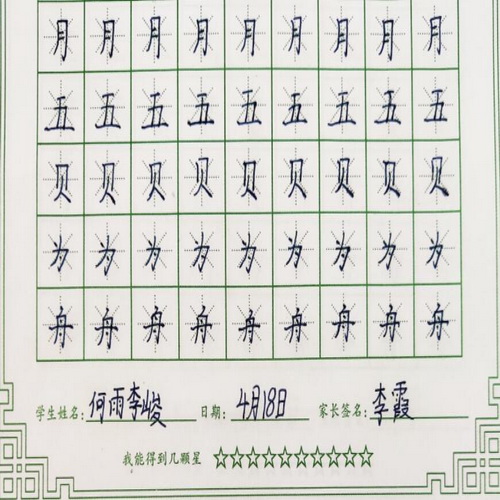 月月月月月月月月月
五五五五五五五五五
贝贝贝贝贝贝贝贝贝
为为为为为为为为为
舟舟舟舟舟舟舟舟舟
学生姓名：何雨李峻 日期：4月18日 家长签名：李霞
我能得到几颗星 ☆☆☆☆☆☆☆☆☆☆